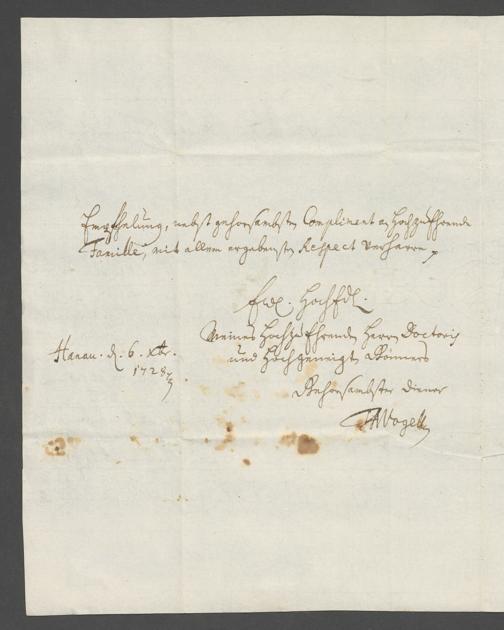 Empfehlung, nebst gehorsambsten Compliment an Hochzuehrende
Famille, mit allem ergebensten Respect verharre
Ewl. HochEdl.
Meines Hochzuehrenden Herrn Doctoris
und Hochgeneigten Gönners
Hanau. d. 6. xbr.
1728
Gehorsambster Diener
Vogell